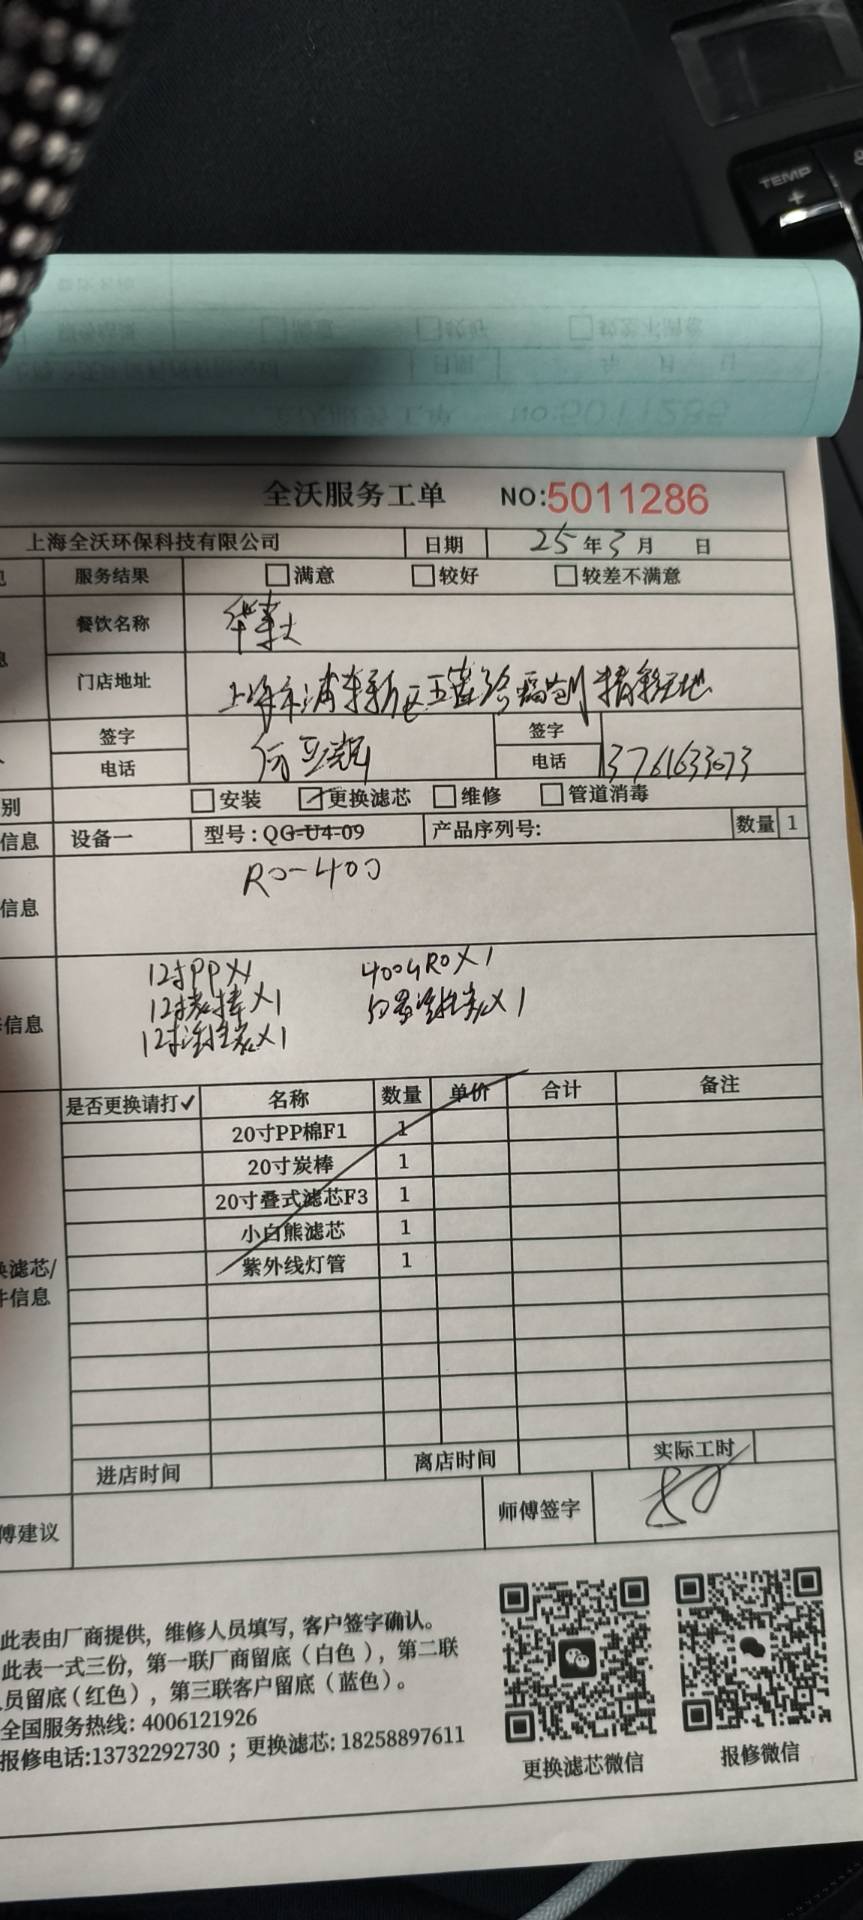 TEMP
+
全沃服务工单 NO:5011286
上海全沃环保科技有限公司 日期 25年3月 日
服务结果 满意 较好 较差不满意
餐饮名称 华莱士
门店地址 上海市浦东新区
签字 签字
电话 电话 13761633073
别 安装 更换滤芯 维修 管道消毒
信息 设备一 型号: QG-U4-09 产品序列号: 数量 1
信息 RO-400
12寸PP×1 400GRO×1
信息 12寸炭棒×1
12寸活性炭×1
是否更换请打✓ 名称 数量 单价 合计 备注
20寸PP棉F1 1
20寸炭棒 1
20寸叠式滤芯F3 1
小白熊滤芯 1
紫外线灯管 1
换滤芯/
件信息
进店时间 离店时间 实际工时
傅建议 师傅签字
此表由厂商提供, 维修人员填写, 客户签字确认。
此表一式三份, 第一联厂商留底 (白色), 第二联
员留底 (红色), 第三联客户留底 (蓝色)。
全国服务热线: 4006121926
报修电话:13732292730 ; 更换滤芯: 18258897611
更换滤芯微信 报修微信